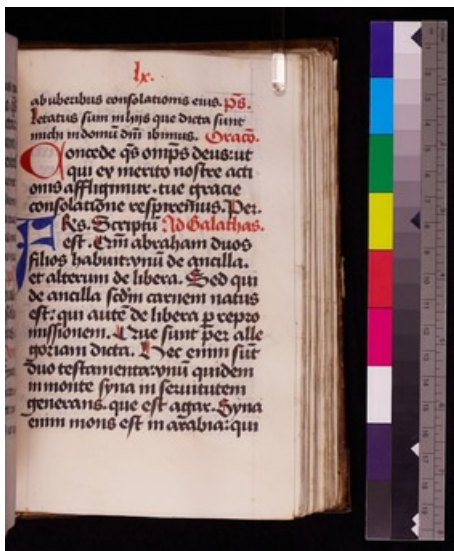 lx.
ab uberibus consolationis eius. p̄s.
Letatus sum in hijs que dicta sunt
michi in domū dn̄i ibimus. Oracō.
Concede q̄s om̄ps deus: ut
qui ex merito nostre acti
onis affligimur. tue gracie
consolatione respirem̄us. Per.
Frēs. Scriptū Ad Galathas.
est. Qm̄ abraham duos
filios habuit: vnū de ancilla.
et alterum de libera. Sed qui
de ancilla scd̄m carnem natus
est: qui autē de libera p̱ repro
missionem. Que sunt per alle
goriam dicta. Hec enim sūt
duo testamenta: vnū quidem
in monte syna in seruitutem
generans. que est agar. Syna
enim mons est in arabia: qui